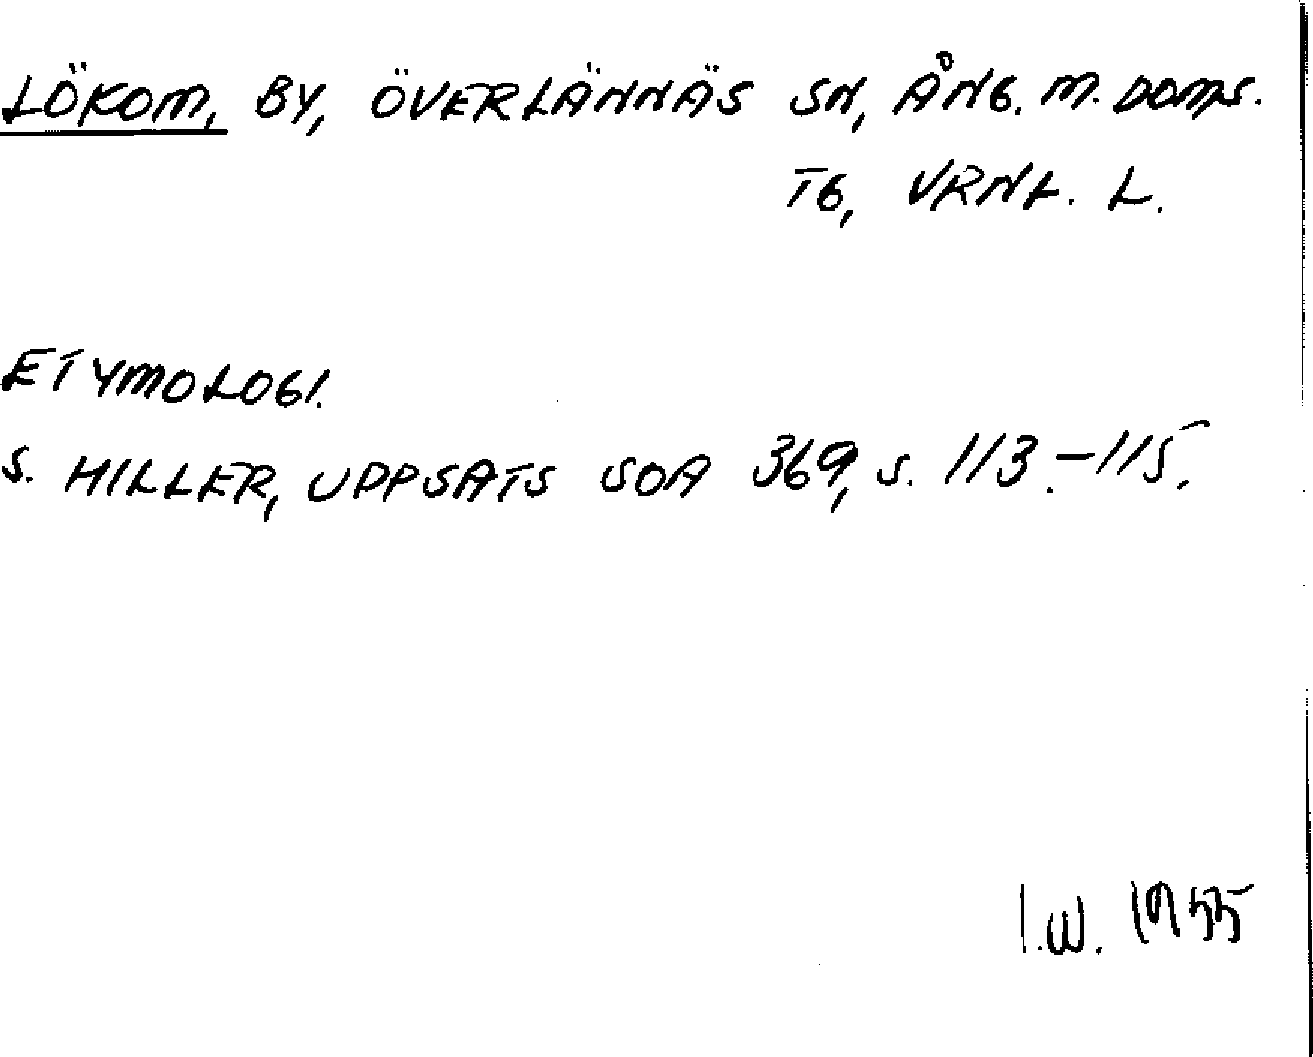 LÖKOM, BY, ÖVERLÄNNÄS SN, ÅNG. M. DOMS.
TG, VRNL. L.
ETYMOLOGI.
S. HILLER, UPPSATS SOA 369, S. 113.-115.
I.W. 1955